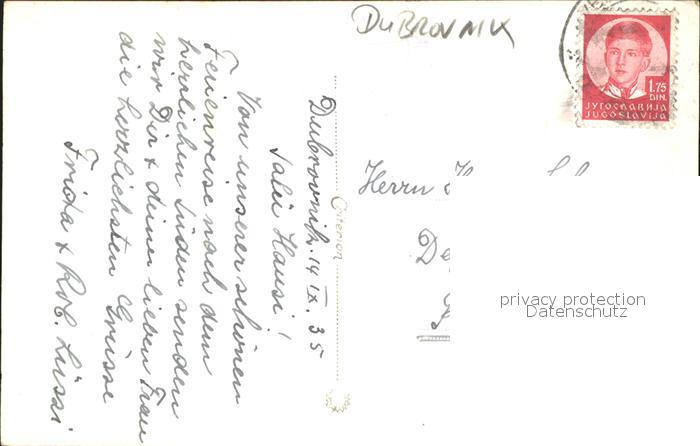 DUBROVNIK
1.75
DIN.
ЈУГОСЛАВИЈА
JUGOSLAVIJA
Dubrovnik. 14 IX. 35
Salü Hansi!
Von unserer schönen
Ferienreise nach dem
herzlichen Süden senden
wir Dir & deiner lieben Frau
die herzlichsten Grüsse
Frida & Rob. Lüssi
Criterion
Herrn
privacy protection
Datenschutz